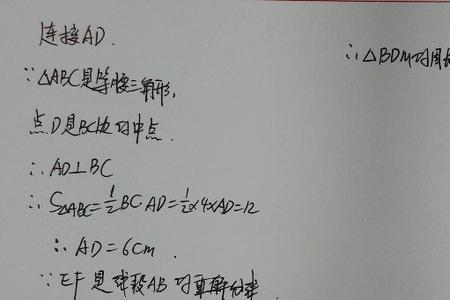 连接AD.
∵△ABC是等腰三角形,
点D是BC边的中点.
∴AD⊥BC
∴S△ABC=1/2BC AD=1/2×4×AD=12
∴AD=6cm.
∵EF是线段AB的垂直
∴△BDM的周长